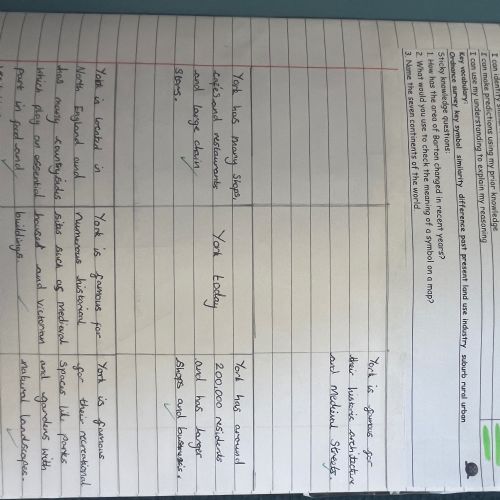 I can identify
I can make predictions using my prior knowledge
I can use my understanding to explain my reasoning
Key vocabulary:
Ordnance survey key symbol similarity difference past present land use industry suburb rural urban
Sticky knowledge questions:
1. How has the area of Barton changed in recent years?
2. What would you use to check the meaning of a symbol on a map?
3. Name the seven continents of the world
York is famous for
their historic architecture
and Medieval Streets.
York has many shops,
cafés and restaurants
and large chain
stores.
York today
York has around
200,000 residents
and has larger
shops and businesses.
York is located in
North England and
has many countrysides
which play an essential
part in food and
York is famous for
numerous historical
sites such as medieval
houses and Victorian
buildings.
York is famous
for their recreational
spaces like parks
and gardens with
natural landscapes.